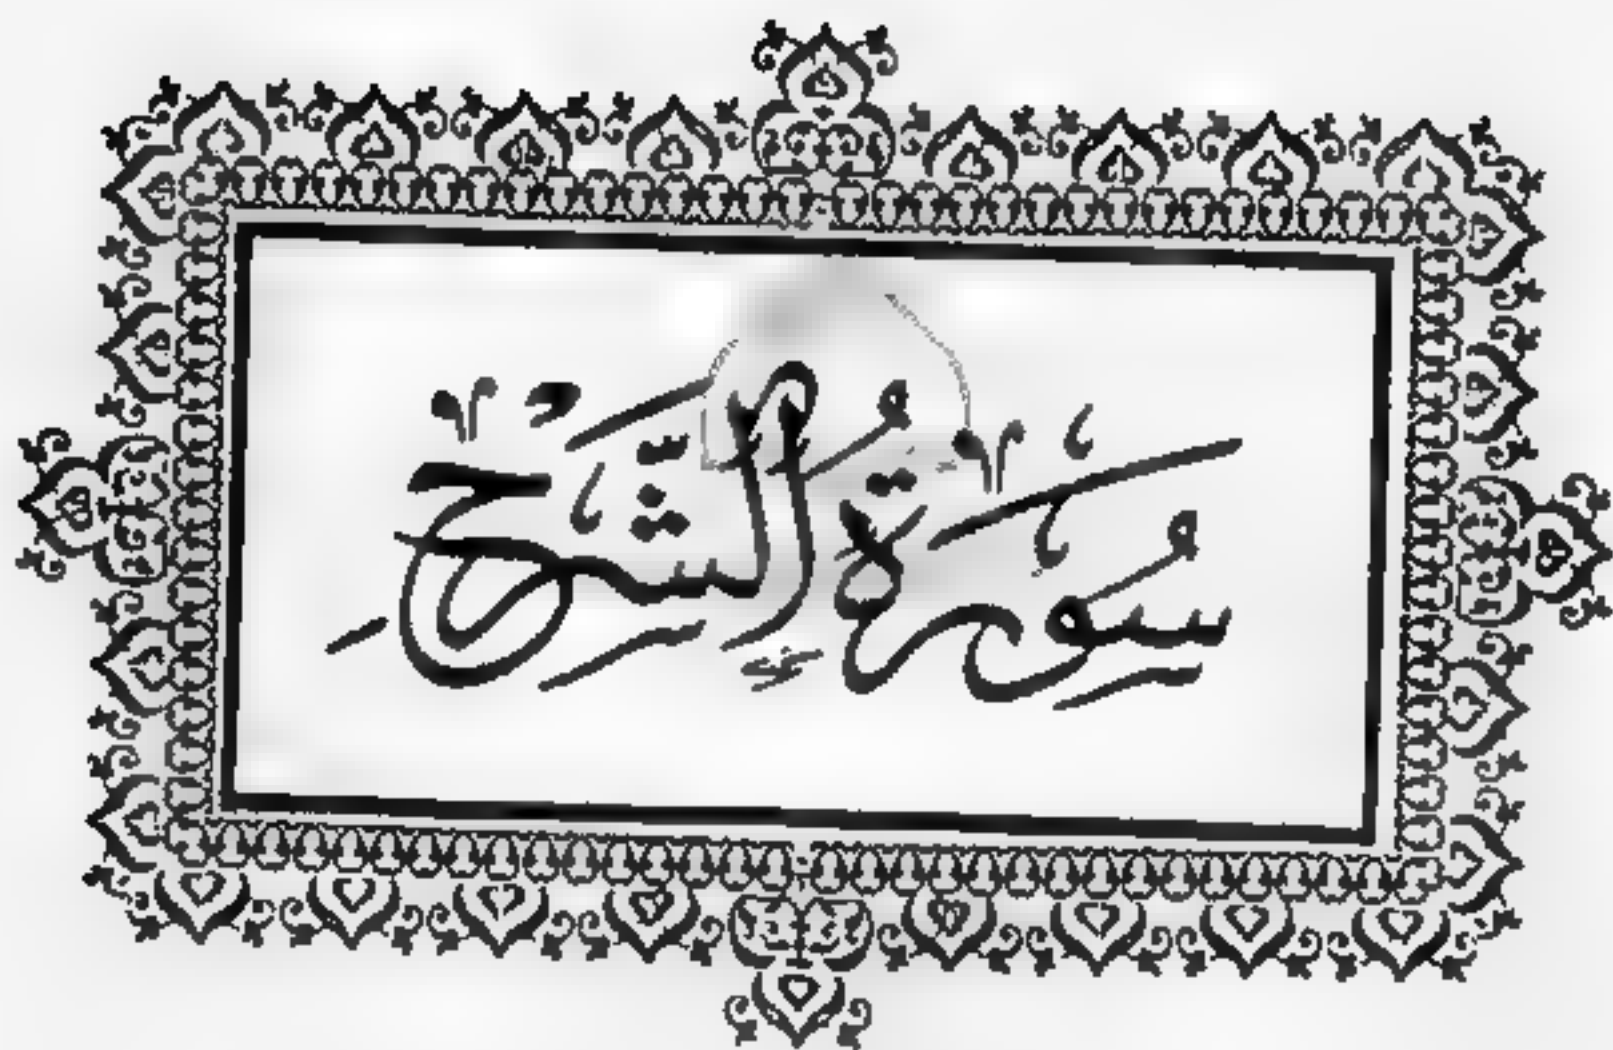 سُورَةُ الشَّرْحِ